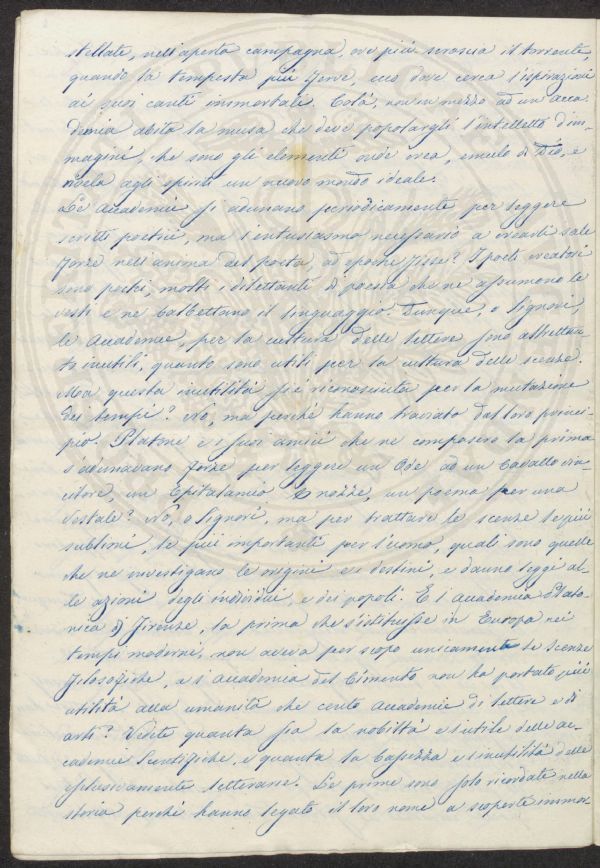 stellate, nell'aperta campagna, ove più scroscia il torrente,
quando la tempesta più ferve, ecco dove cerca l'ispirazioni
ai suoi canti immortali. Colà, non in mezzo ad un'acca-
demia abita la musa che deve popolargli l'intelletto d'im-
magini, che sono gli elementi onde crea, emulo di Dio, e
rivela agli spiriti un nuovo mondo ideale.
Le Accademie si adunano periodicamente per leggere
scritti poetici, ma l'entusiasmo necessario a crearli sale
forse nell'anima del poeta, ad epoche fisse? I poeti creatori
sono pochi, molti i dilettanti di poesia che ne assumono le
vesti e ne balbettano il linguaggio. Dunque, o Signori,
le Accademie, per la cultura delle lettere sono altrettan-
to inutili, quanto sono utili per la cultura delle scienze.
Ma questa inutilità si è riconosciuta per la mutazione
dei tempi? No, ma perché hanno traviato dal loro princi-
pio. Platone e i suoi amici che ne composero la prima
s'adunavano forse per leggere un Ode ad un Cavallo vin-
citore, un Epitalamio a nozze, un poema per una
Vestale? No, o Signori, ma per trattare le scienze le più
sublimi, le più importanti per l'uomo, quali sono quelle
che ne investigano le origini e i destini, e danno leggi al-
le azioni degli individui, e dei popoli. E l'Accademia Plato-
nica di Firenze, la prima che s'istituisse in Europa nei
tempi moderni, non aveva per scopo unicamente le scienze
filosofiche, e l'Accademia del Cimento non ha portato più
utilità alla umanità che cento Accademie di lettere e di
arti? Vedete quanta sia la nobiltà e l'utile delle ac-
cademie Scentifiche, e quanta la bassezza e l'inutilità delle
esclusivamente letterarie. Le prime sono solo ricordate nella
storia perché hanno legato il loro nome a scoperte immor-